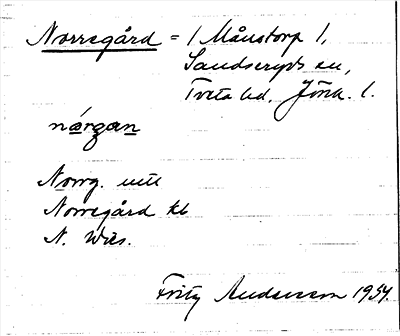 Norregård = 1 Månstorp 1,
Sandseryds sn,
Tveta hd, Jönk. l.
nǻrgan
Norrg. mtl
Norregård kb
N.
Fritz Andersson 1934.